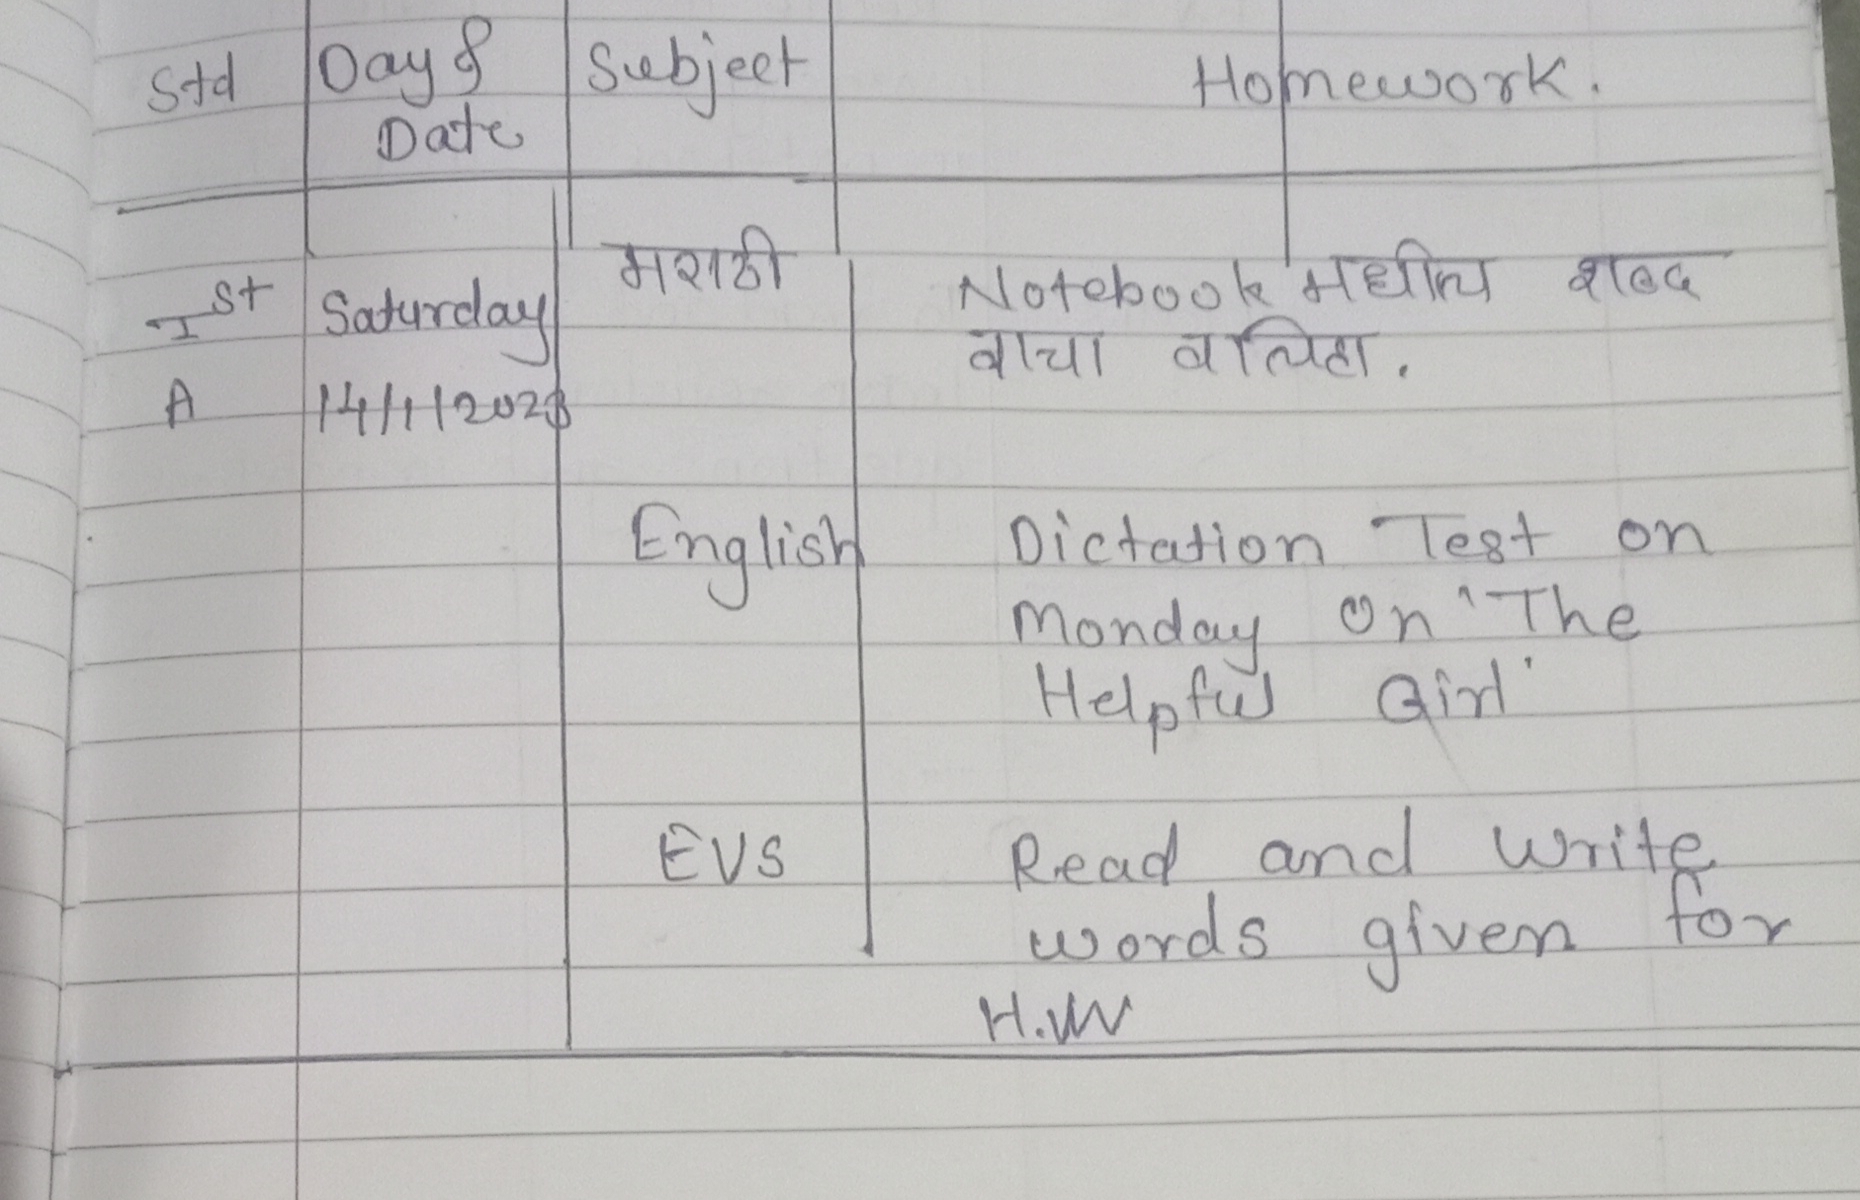 Std Day & Subject Homework.
Date
Ist Saturday मराठी Notebook मधील शब्द
वाचा व लिहा.
A 14/1/2023
English Dictation Test on
Monday on 'The
Helpful Girl'
EVS Read and write
words given for
H.W